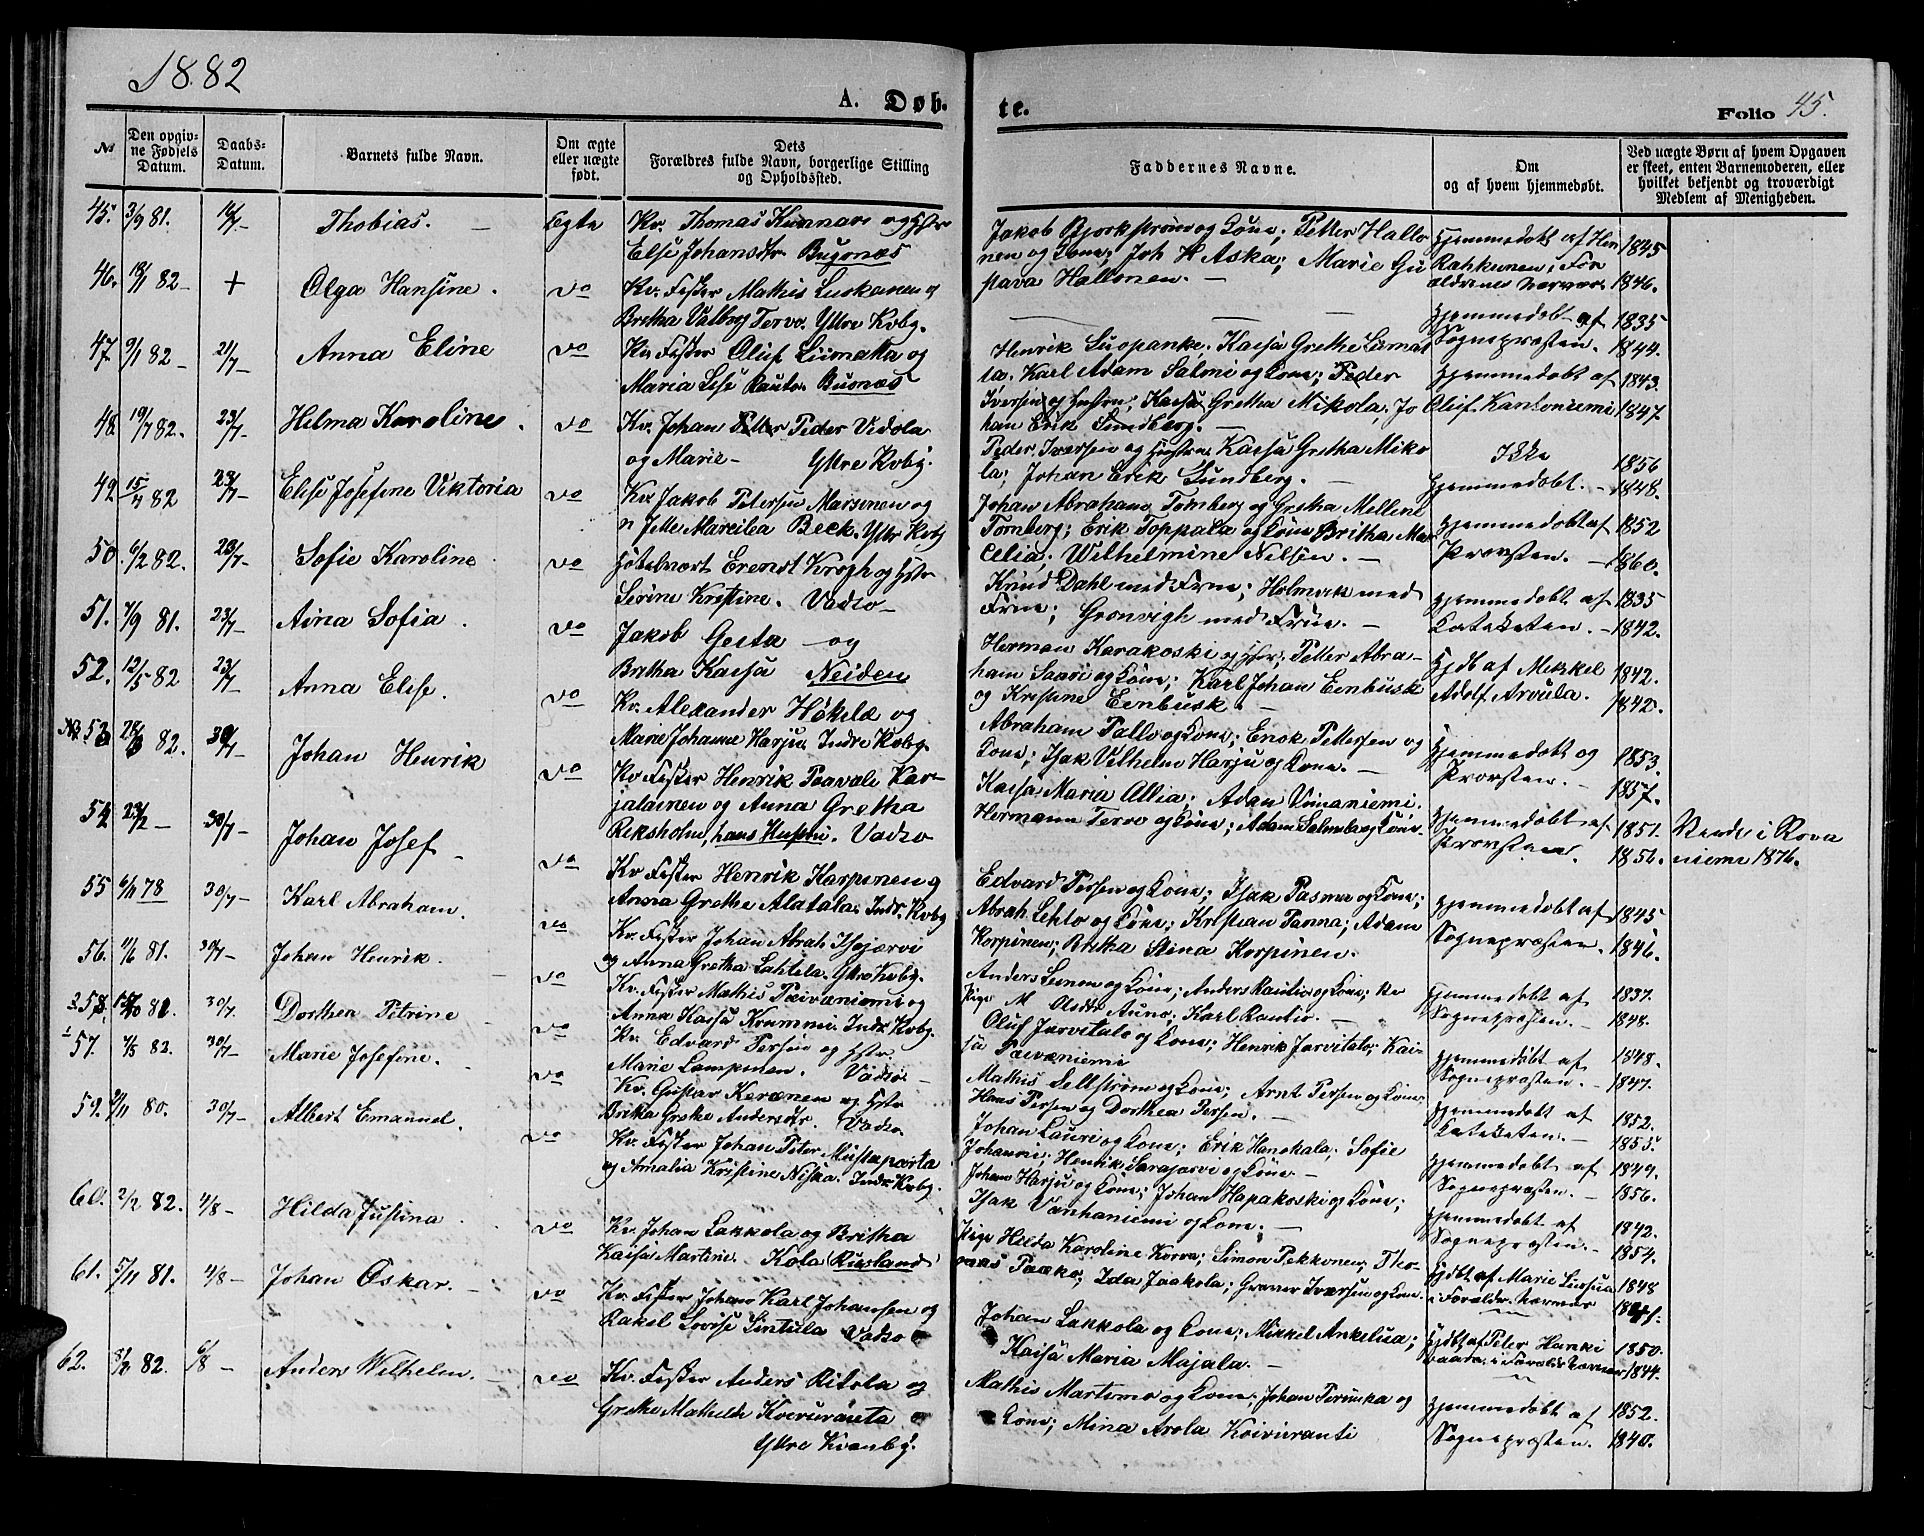 1882
A. Døb-
te.
Folio 45.
No
Den opgiv-
ne Fødsels
Datum.
Daabs-
Datum.
Barnets fulde Navn.
Om ægte
eller uægte
født.
Dets
Forældres fulde Navn, borgerlige Stilling
og Opholdssted.
Faddernes Navne.
Om
og af hvem hjemmedøbt.
Ved uægte Børn af hvem Opgaven
er skeet, enten Barnemoderen, eller
hvilket bekjendt og troværdigt
Medlem af Menigheden.
45. 3/9 81. 16/7 – Thobias. – Ægte Kv. Thomas Kunnari og Hstr
Else Johansdtr. Bugønæs
Jakob Bjorkstrøm og Kone; Petter Hallo
nen og Kone; Joh H Aska; Marie Gu
stava Hallonen. –
Hjemmedøbt af Hen
Rahkunen; For
ældrenes Nærvær.
1845
1846.
46. 18/1 82 – + Olga Hansine. do Kv. Fisker Mathis Luskanen og
Bretha Valborg Tervo. Yttre Kvbg.
Hjemmedøbt af
Sognepræsten.
1835
1844.
47 9/1 82 – 21/7 – Anna Eline do Kv. Fisker Oluf Liimatta og
Maria Lise Rautio. Bugnæs
Henrik Suopanke; Kaisa Grethe Limat
ta. Karl Adam Salmi og Kone; Peder
Iversen og Hustru; Kaisa Gretha Mikola. Jo
han Erik Sundberg. –
Hjemmedøbt af
Olif Kantoniemi
1843.
1847
48. 19/7 82. 23/7 – Helma Karoline. do Kv. Johan Petter Peder Vidola
og Marie – Yttre Kvbg.
Peder Iversen og Hustru Kaisa Gretha Miko
la; Johan Erik Sundberg. –
Ikke
1856
1848.
49 15/4 82 23/7 – Elise Josefine Viktoria do Kv. Jakob Petersen Marsinen og
Jette Marcilea Beck. Yttre Kvbg
Johan Abraham Tornberg og Gretha Mellene
Tornberg; Erik Toppala og Kone Britha Ma
Celia; Wilhelmine Nilsen. –
Hjemmedøbt. –
Hjemmedøbt af
Provsten. –
1852
1860.
50. 6/2 82. 23/7 – Sofie Karoline do Hotelvært Erendt Krogh og Hstr
Serine Kristine. Vadsø –
Knud Dahl med Frue; Holmvik med
Frue; Gronvigh med Frue. –
Hjemmedøbt af
Kateketen. –
1835
1842.
51. 7/9 81. 23/7 – Aina Sofia. do Jakob Gesta og
Bretha Kaisa Neiden
Herman Karakoski og Hstr; Petter Abra–
ham Saari og Kone; Karl Johan Eenbusk
og Kristine Eenbusk. –
Hjdt af Mikkel
Adolf Arvula.
1842.
1842.
52. 12/5 82 23/7 – Anna Elise. do Kv. Alexander Høkelæ og
Marie Johanne Harju. Indre Kvbg.
Abraham Pallo og Kone; Enok Pettersen og
Kone; Isak Vilhelm Harju og Kone. –
Hjemmedøbt og
Provsten. –
1853.
1857.
No. 53 28/3 82. 30/7 – Johan Henrik do Kv. Fisker Henrik Paavale Kar–
jalainen og Anna Gretha
Riksholm, hans Hustru. Vadsø
Kaisa Maria Allia; Adam Uimaniemi.
Hermann Tervo og Kone; Adam Salmela og Kone.
Hjemmedøbt af
Provsten.
1851.
1856.
Viede i Rova
niemi 1876.
54 23/2 – 30/7 – Johan Josef – do Kv Fisker Henrik Karpinen og
Anna Grethe Alatala. Indre Kvbg
Edvard Persen og Kone; Isak Pasma og Kone;
Abrah Lehto og Kone; Kristian Panna; Adam
Korpinen; Bretha Stina Korpinen.
Hjemmedøbt af
Sognepræsten.
1845
1846.
55 6/11 78 30/7 – Karl Abraham. do Kv. Fisker Johan Abrah Isojærvi
og Anna Gretha Lahtela. Yttre Kvbg.
Anders Lunnen og Kone; Anders Rautio og Kone;
Pige M Olsdtr Auno, Karl Rautio. –
Hjemmedøbt af
Sognepræsten. –
1837.
1848.
56. 11/6 81. 30/7 – Johan Henrik. do Kv. Fisker Mathis Paivæniemi og
Anna Kaisa Krummi. Indre Kvbg.
Oluf Jarvitalo og Kone; Henrik Jarvitalo; Kai–
sa Paivæniemi
Hjemmedøbt af
Sognepræsten. –
1848.
1847.
2 58. 15/10 81. 30/7. Dorthea Petrine – do Kv. Edvard Persen og Hstr.
Marie Lampinen. Vadsø –
Mathis Sellstrøm og Kone; Arnt Persen og Kone.
Hans Persen og Dorthea Persen. –
Hjemmedøbt af
Kateketen. –
1852.
1853.
1 57. 7/5 82. 30/7 – Marie Josefine. do Kv. Gustav Kerænen og Hstr
Brita Grete Andersdtr. Vadsø.
Johan Lauri og Kone; Erik Hanokala; Sofie
Johanni; Henrik Sarajarvi og Kone –
Hjemmedøbt af
Sognepræsten. –
1849.
1856.
59. 9/11 80. 30/7 – Albert Emanuel. do Kv. Fisker Johan Peter Mustaparta
og Amalia Kristine Niska. Indr. Kvbg.
Johan Harju og Kone; Johan Hapakoski og Kone;
Isak Vanhaniemi og Kone; –
Hjemmedøbt af
Sognepræsten. –
1842.
1854.
60. 2/2 82. 4/8 – Hilda Justina. do Kv. Johan Lakkola og Britha
Kaisa Martine. Kola Rusland
Pige Hilda Karoline Korva; Simon Pekkonen; Tho–
mas Paako; Ida Jaakola; Gunner Iversen og Kone.
Hjdbt. af Marie Luosua
i Forældr. Nærvær
1848
61. 5/11 81. 4/8 – Johan Oskar. – do Kv. Fisker Johan Karl Johansen og
Rakel Lovise Sintula Vadsø
Johan Lakkola og Kone; Mikkel Ankelusa;
Kaisa Maria Majala. –
Hjdbt. af Peter Hanki
vaara i Forældr. Nærvær
1850.
1844.
62. 8/2 82. 6/8 – Anders Wilhelm. – do Kv. Fisker Anders Ritola og
Grethe Mathilde Koivuranta
Yttre Kvænby.
Mathis Martimo og Kone; Johan Perunka og
Kone; Mina Arola Koivuranti
Hjemmedøbt af
Sognepræsten.
1852.
1840.